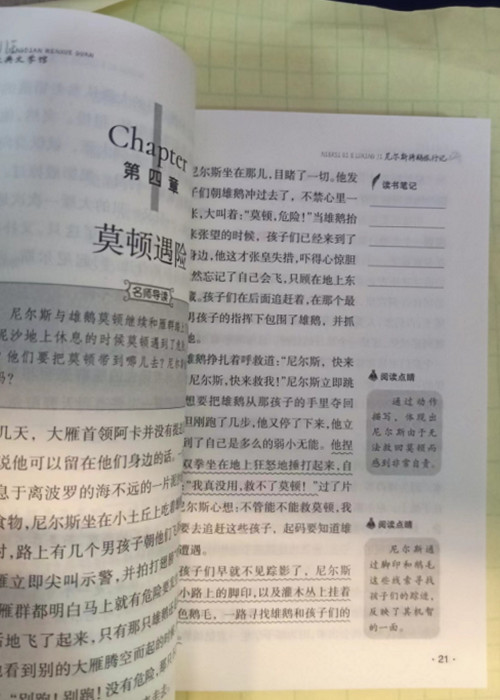 典文学馆
Chapter
第四章
莫顿遇险
名师导读
尼尔斯与雄鹅莫顿继续和雁群
泥沙地上休息的时候莫顿遇到了
？他们要把莫顿带到哪儿去？尼尔
吗？
几天，大雁首领阿卡并没有
说他可以留在他们身边的话。
息于离波罗的海不远的一片
食物，尼尔斯坐在小土丘上吃
时，路上有几个男孩子朝他们
雁立即尖叫示警，并拍打翅膀
雁群都明白马上就有危险要
后地飞了起来，只有那只雄鹅
他看到别的大雁腾空而起的时
“别跑！别跑！没有危险，
尼尔斯骑鹅旅行记
尼尔斯坐在那儿，目睹了一切。他发
子们朝雄鹅冲过去了，不禁心里一
张，大叫着：“莫顿，危险！”当雄鹅抬
来张望的时候，孩子们已经来到了
身边，他这才张皇失措，吓得心惊胆
然忘记了自己会飞，只顾在地上东
。孩子们在后面追赶着，在那个最
男孩子的指挥下包围了雄鹅，并抓
他。
雄鹅挣扎着呼救道：“尼尔斯，快来
尼尔斯，快来救我！”尼尔斯立即跳
想要把雄鹅从那孩子的手里夺回
但刚跑了几步，他又停了下来，他立
到了自己是多么的弱小无能。他捏
双拳坐在地上狂怒地捶打起来，自
：“我真没用，救不了莫顿！”过了片
尼尔斯心想：不管能不能救莫顿，我
要去追赶这些孩子，起码要知道雄
遭遇。
孩子们早就不见踪影了，尼尔斯
小路上的脚印，以及灌木丛上挂着
色鹅毛，一路寻找雄鹅和孩子们的
读书笔记
阅读点睛
通过动作
描写，体现出
尼尔斯由于无
法救回莫顿而
感到非常自责。
阅读点睛
尼尔斯通
过脚印和鹅毛
这些线索寻找
孩子们的踪迹，
反映了其机智
的一面。
·21·